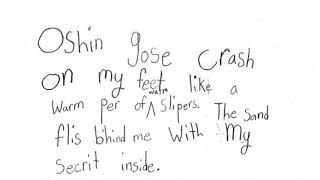 Oshin gose Crash
on my feet like a
warm
Warm per of ^ Slipers. The Sand
flis bihind me With My
Secrit inside.